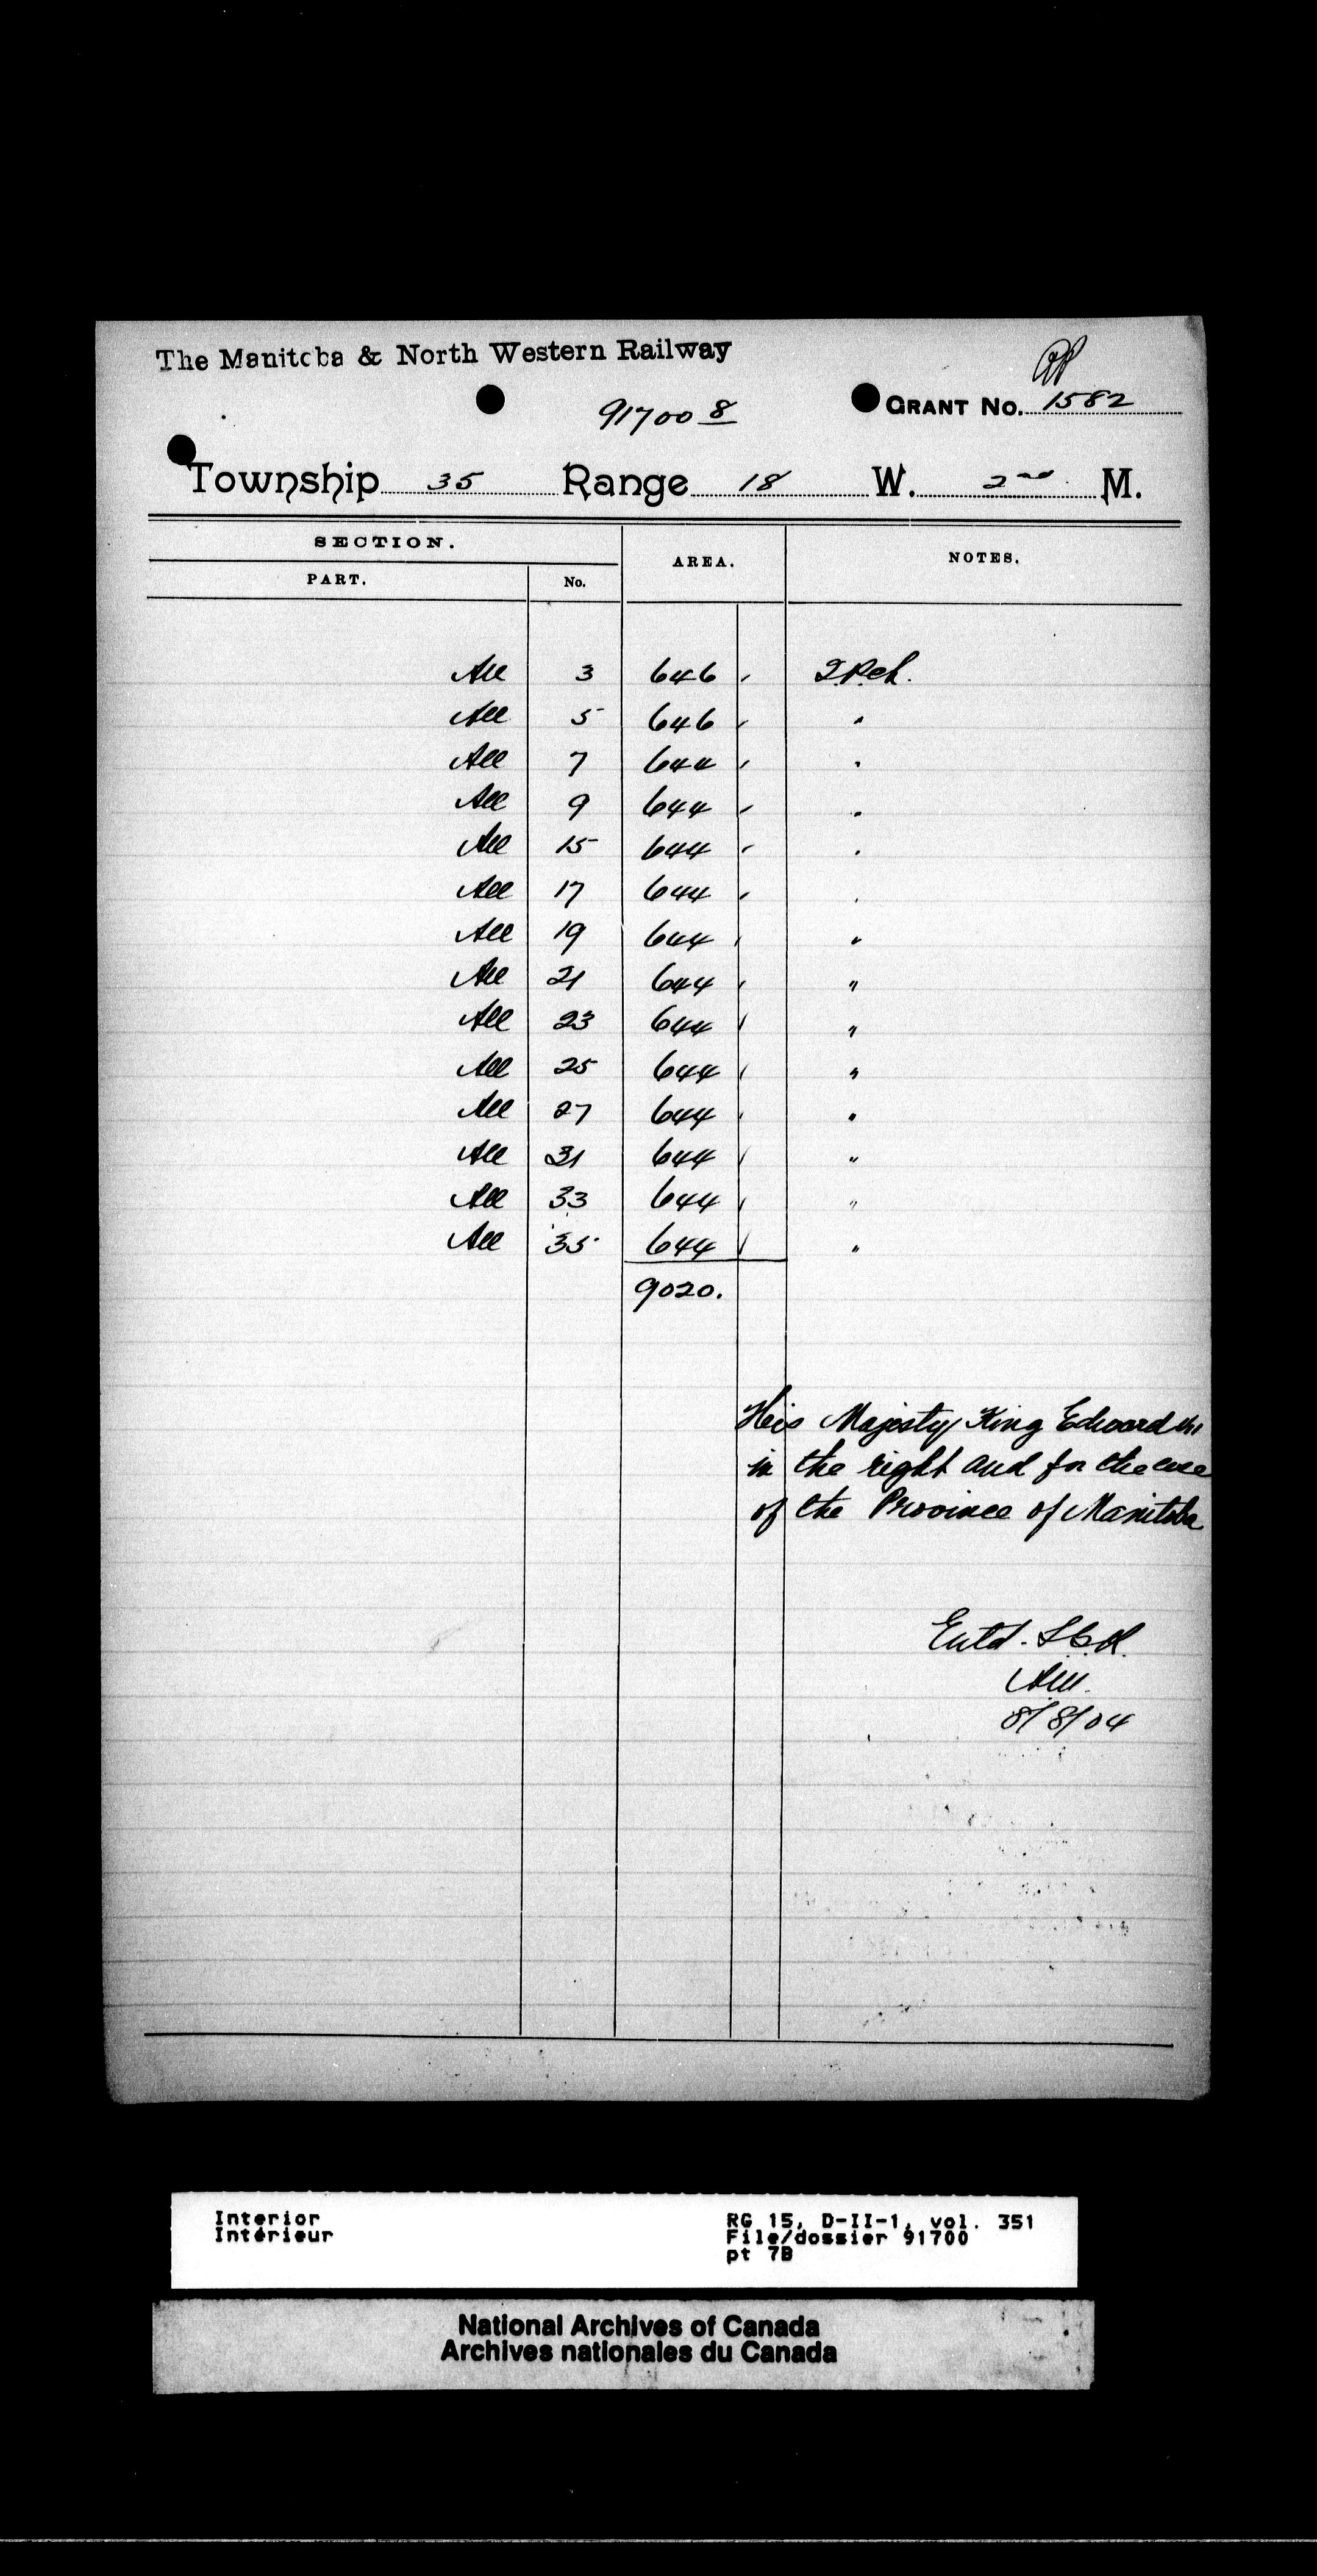 The Manitoba & North Western Railway
91700 8
GRANT No. 1582
Township 35 Range 18 W. 2nd M.
SECTION. AREA. NOTES.
PART. No.
All 3 646
All 5 646 "
All 7 644 "
All 9 644 "
All 15 644 "
All 17 644 "
All 19 644 "
All 21 644 "
All 23 644 "
All 25 644 "
All 27 644 "
All 31 644 "
All 33 644 "
All 35 644 "
9020.
His Majesty King Edward VII
in the right and for the use
of the Province of Manitoba
Entd.
8/8/04
Interior
Intérieur
RG 15, D-II-1, vol. 351
File/dossier 91700
pt 7B
National Archives of Canada
Archives nationales du Canada